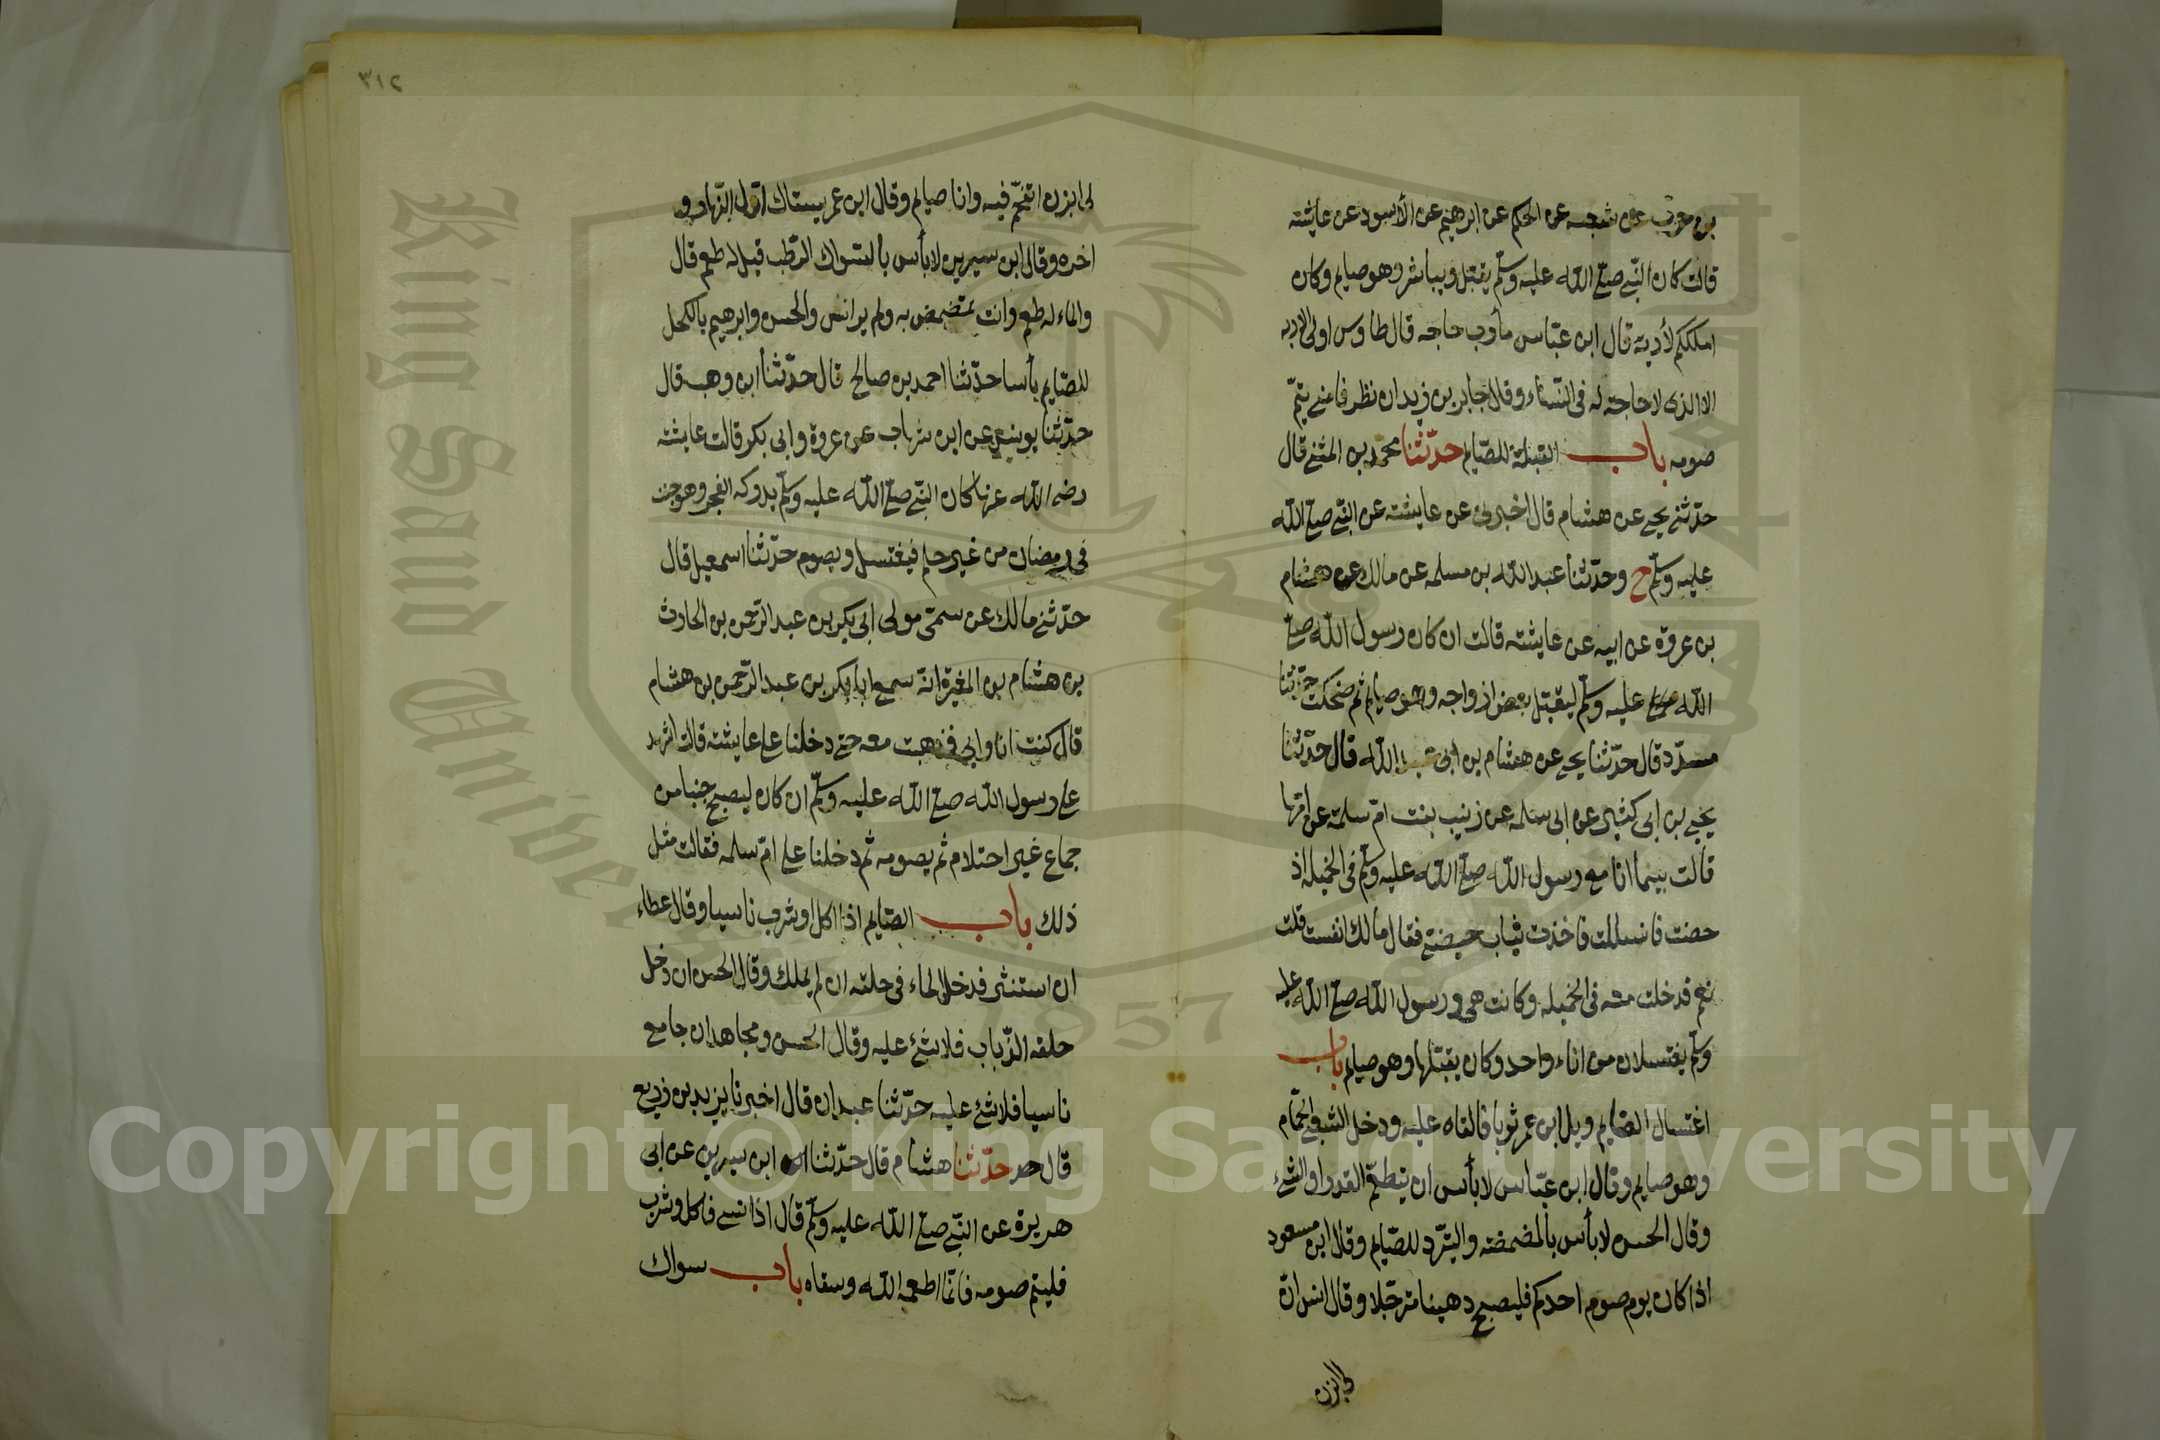 بن حرب عن شعبه عن الحكم عن ابرهيم عن الأسود عن عايشته
قالت كان النبى صلى الله عليه وسلم يقبل ويباشر وهو صايم وكان
املككم لأربه قال ابن عباس مأرب حاجه قال طاوس اولى الاربه
الاالذى لاحاجة له فى النساء وقال جابر بن زيد ان نظر فامنى يتم
صومه باب القبلة للصايم حدثنا محمد بن المثنى قال
حدثنى يحيى عن هشام قال اخبرنى عن عايشته عن النبى صلى الله
عليه وسلم ح وحدثنا عبد الله بن مسلمه عن مالك عن هشام
بن عروة عن ابيه عن عايشته قالت ان كان رسول الله صلى
الله عليه وسلم ليقبل بعض ازواجه وهو صايم ثم ضحكت حدثنا
مسدد قال حدثنا يحيى عن هشام بن ابى عبد الله قال حدثنا
يحيى بن ابى كثير عن ابى سلمه عن زينب بنت ام سلمة عن امها
قالت بينما انا مع رسول الله صلى الله عليه وسلم فى الخميله اذ
حضت فانسللت فاخذت ثياب حيضتى فقال مالك انفست قلت
نعم فدخلت معه فى الخميله وكانت هى ورسول الله صلى الله عليه
وسلم يغتسلان من اناء واحد وكان يقبلها وهو صايم باب
اغتسال الصايم وبل ابن عمر ثوبا فالقاه عليه ودخل الشعبى الحمام
وهو صايم وقال ابن عباس لابأس ان يتطعم القدر او الشئ
وقال الحسن لابأس بالمضمضته والتبرد للصايم وقال ابن مسعود
اذا كان يوم صوم احدكم فليصبح دهينا مترجلا وقال انس ان
لى ابزن
٣١٢
لى ابزن اتقحم فيه وانا صايم وقال ابن عمر يستاك اول النهار و
اخره وقال ابن سيرين لابأس بالسواك الرطب قيل له طعم قال
والماء له طعم وانت تمضمض به ولم ير انس والحسن وابرهيم بالكحل
للصايم بأسا حدثنا احمد بن صالح قال حدثنا ابن وهب قال
حدثنا يونس عن ابن شهاب عن عروة وابى بكر قالت عايشته
رضى الله عنها كان النبى صلى الله عليه وسلم يدركه الفجر وهو جنب
فى رمضان من غير حلم فيغتسل ويصوم حدثنا اسمعيل قال
حدثنى مالك عن سمى مولى ابى بكر بن عبد الرحمن بن الحارث
بن هشام بن المغيرة انه سمع ابا بكر بن عبد الرحمن بن هشام
قال كنت انا وابى فذهبت معه حتى دخلنا على عايشته قالت اشهد
على رسول الله صلى الله عليه وسلم ان كان ليصبح جنبا من
جماع غير احتلام ثم يصومه ثم دخلنا على ام سلمه فقالت مثل
ذلك باب الصايم اذا اكل او شرب ناسيا وقال عطاء
ان استنثر فدخل الماء فى حلقه ان لم يملك وقال الحسن ان دخل
حلقه الذباب فلا شئ عليه وقال الحسن ومجاهد ان جامع
ناسيا فلا شئ عليه حدثنا عبدان قال اخبرنا يزيد بن زريع
قال حدثنا هشام قال حدثنا ابن سيرين عن ابى
هريرة عن النبى صلى الله عليه وسلم قال اذا نسى فاكل وشرب
فليتم صومه فانما اطعمه الله وسقاه باب سواك
King Saud University
1957
Copyright © King Saud University